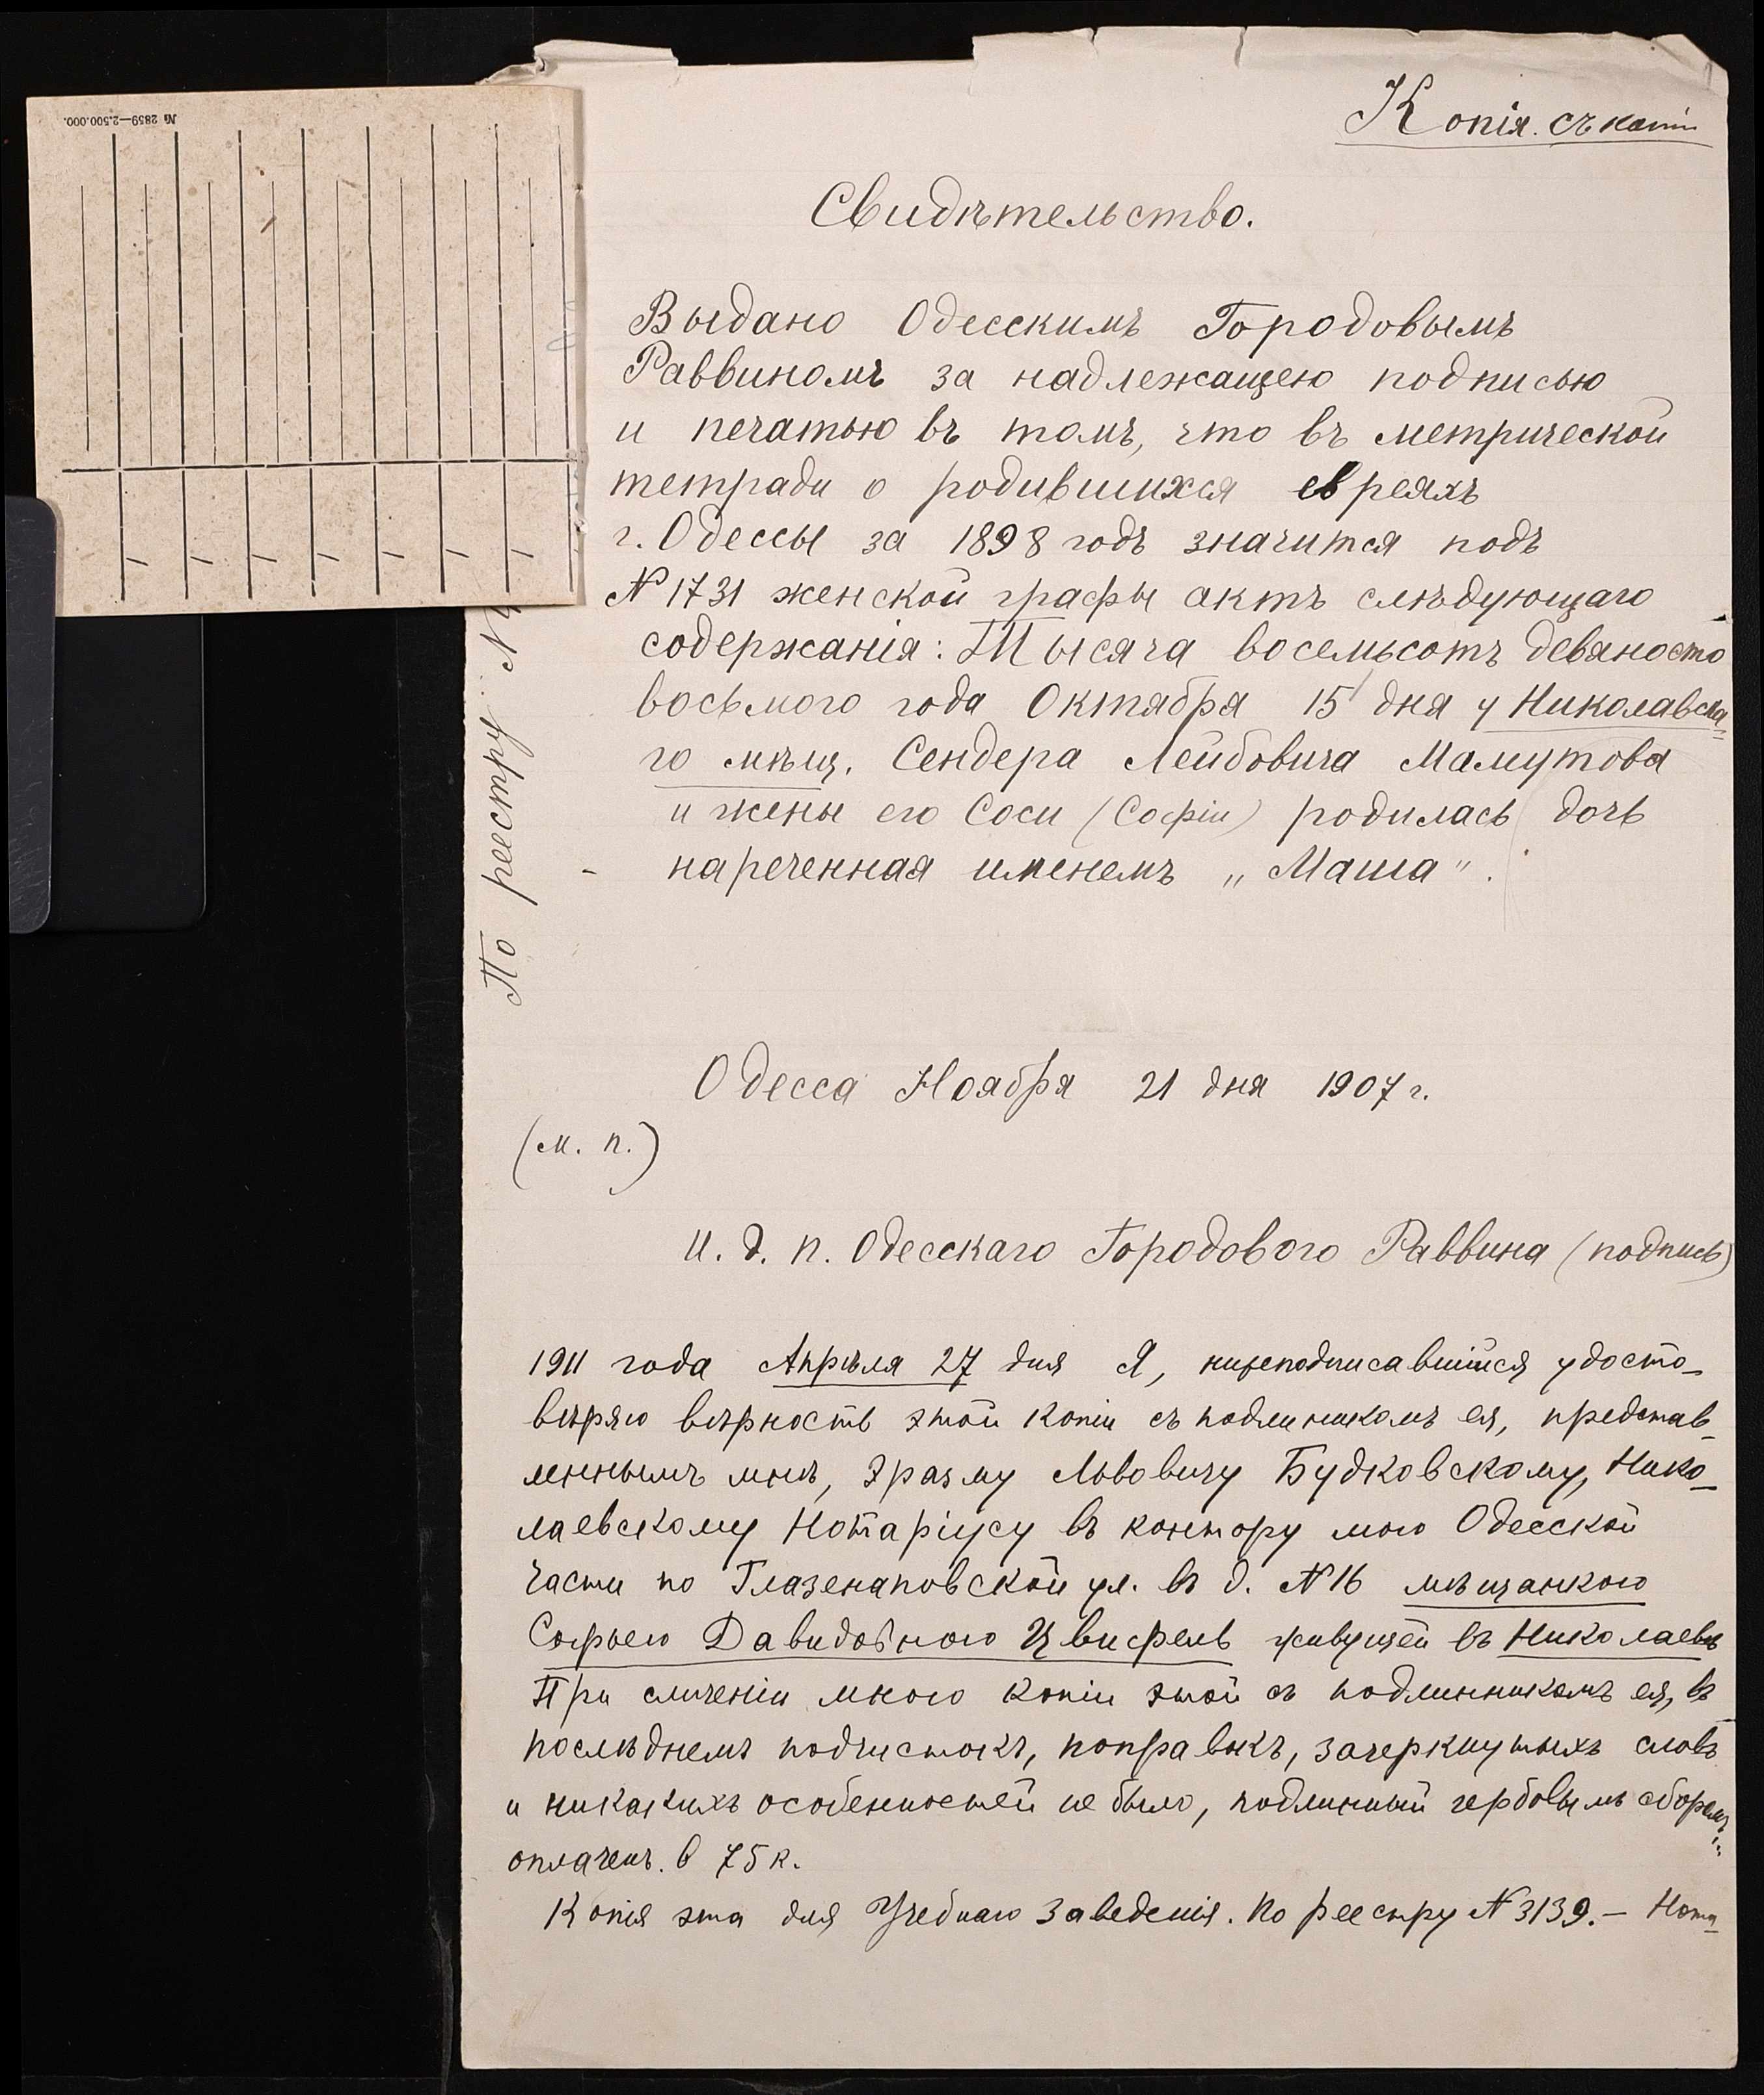 № 2859—2.500.000.
Копія съ копіи
Свидѣтельство.
Выдано Одесскимъ Городовымъ
Раввиномъ за надлежащею подписью
и печатью въ томъ, что въ метрической
тетради о родившихся евреяхъ
г. Одессы за 1898 годъ значится подъ
№ 1731 женской графы актъ слѣдующаго
содержанія: Тысяча восемьсотъ девяносто
восьмого года Октября 15 дня у Николаевска-
го мѣщ. Сендера Лейбовича Мамутова
и жены его Соси (Софіи) родилась дочь
нареченная именемъ „Маша".
По реестру №
Одесса Ноября 21 дня 1907 г.
(м. п.)
И. д. п. Одесскаго Городового Раввина (подпись)
1911 года Апрѣля 27 дня Я, нижеподписавшійся удосто-
вѣряю вѣрность этой копіи съ подлинникомъ ея, представ-
леннымъ мнѣ, Эразму Львовичу Будковскому, Нико-
лаевскому Нотаріусу въ контору мою Одесской
части по Глазенаповской ул. въ д. № 16 мѣщанкою
Софьею Давидовною Цвифель живущей въ Николаевѣ
При сличеніи мною копіи этой съ подлинникомъ ея, въ
послѣднемъ подчистокъ, поправокъ, зачеркнутыхъ словъ
и никакихъ особенностей не было, подлинный гербовымъ сборомъ
оплаченъ. в 75 к.
Копія эта для Учебнаго Заведенія. По реестру № 3139.— Нота-